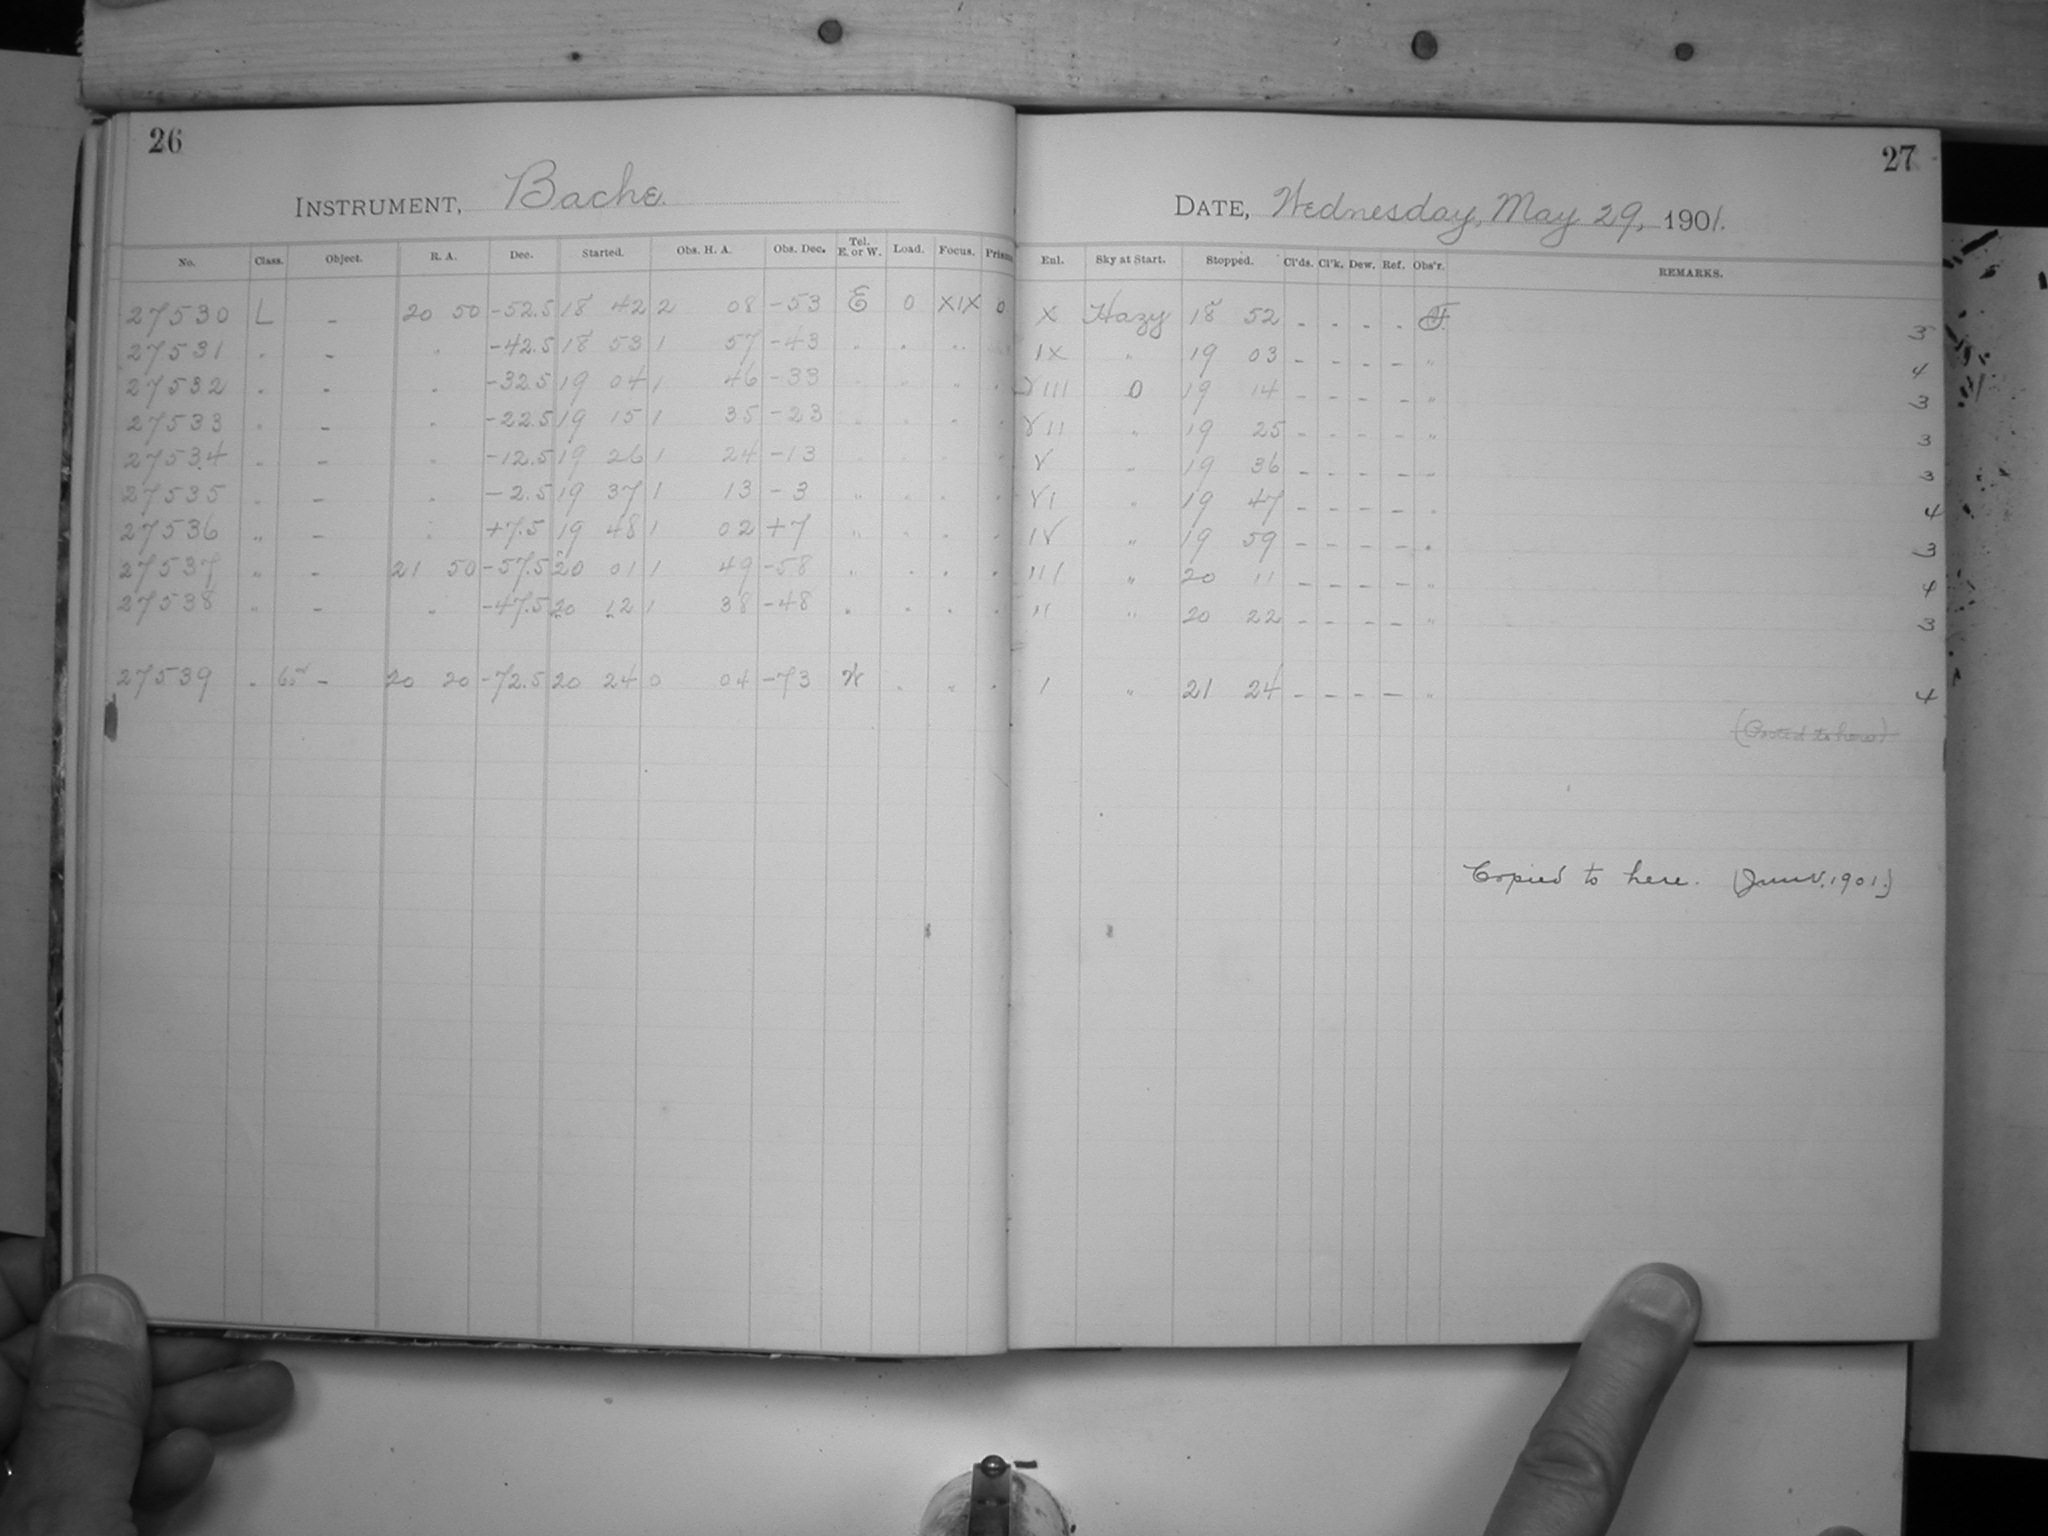 26
INSTRUMENT, Bache.
No. Class. Object. R. A. Dec. Started. Obs. H. A. Obs. Dec. Tel. E. or W. Load. Focus. Prism
27530 L - 20 50 -52.5 18 42 2 08 -53 E 0 XIX 0
27531 " - " -42.5 18 53 1 57 -43 " " " "
27532 " - " -32.5 19 04 1 46 -33 " " " "
27533 " - " -22.5 19 15 1 35 -23 " " " "
27534 " - " -12.5 19 26 1 24 -13 " " " "
27535 " - " -2.5 19 37 1 13 -3 " " " "
27536 " - " +7.5 19 48 1 02 +7 " " " "
27537 " - 21 50 -57.5 20 01 1 49 -58 " " " "
27538 " - " -47.5 20 12 1 38 -48 " " " "
27539 " 60m - 20 20 -72.5 20 24 0 04 -73 W " " "
27
DATE, Wednesday, May 29, 1901.
Enl. Sky at Start. Stopped. Cl'ds. Cl'k. Dew. Ref. Obs'r. REMARKS.
X Hazy 18 52 - - - - F. 5
IX " 19 03 - - - - " 4
VIII 0 19 14 - - - - " 3
VII " 19 25 - - - - " 3
V " 19 36 - - - - " 3
VI " 19 47 - - - - " 4
IV " 19 59 - - - - " 3
III " 20 11 - - - - " 4
II " 20 22 - - - - " 3
I " 21 24 - - - - " 4
(Posted to here)
Copied to here. (June, 1901.)